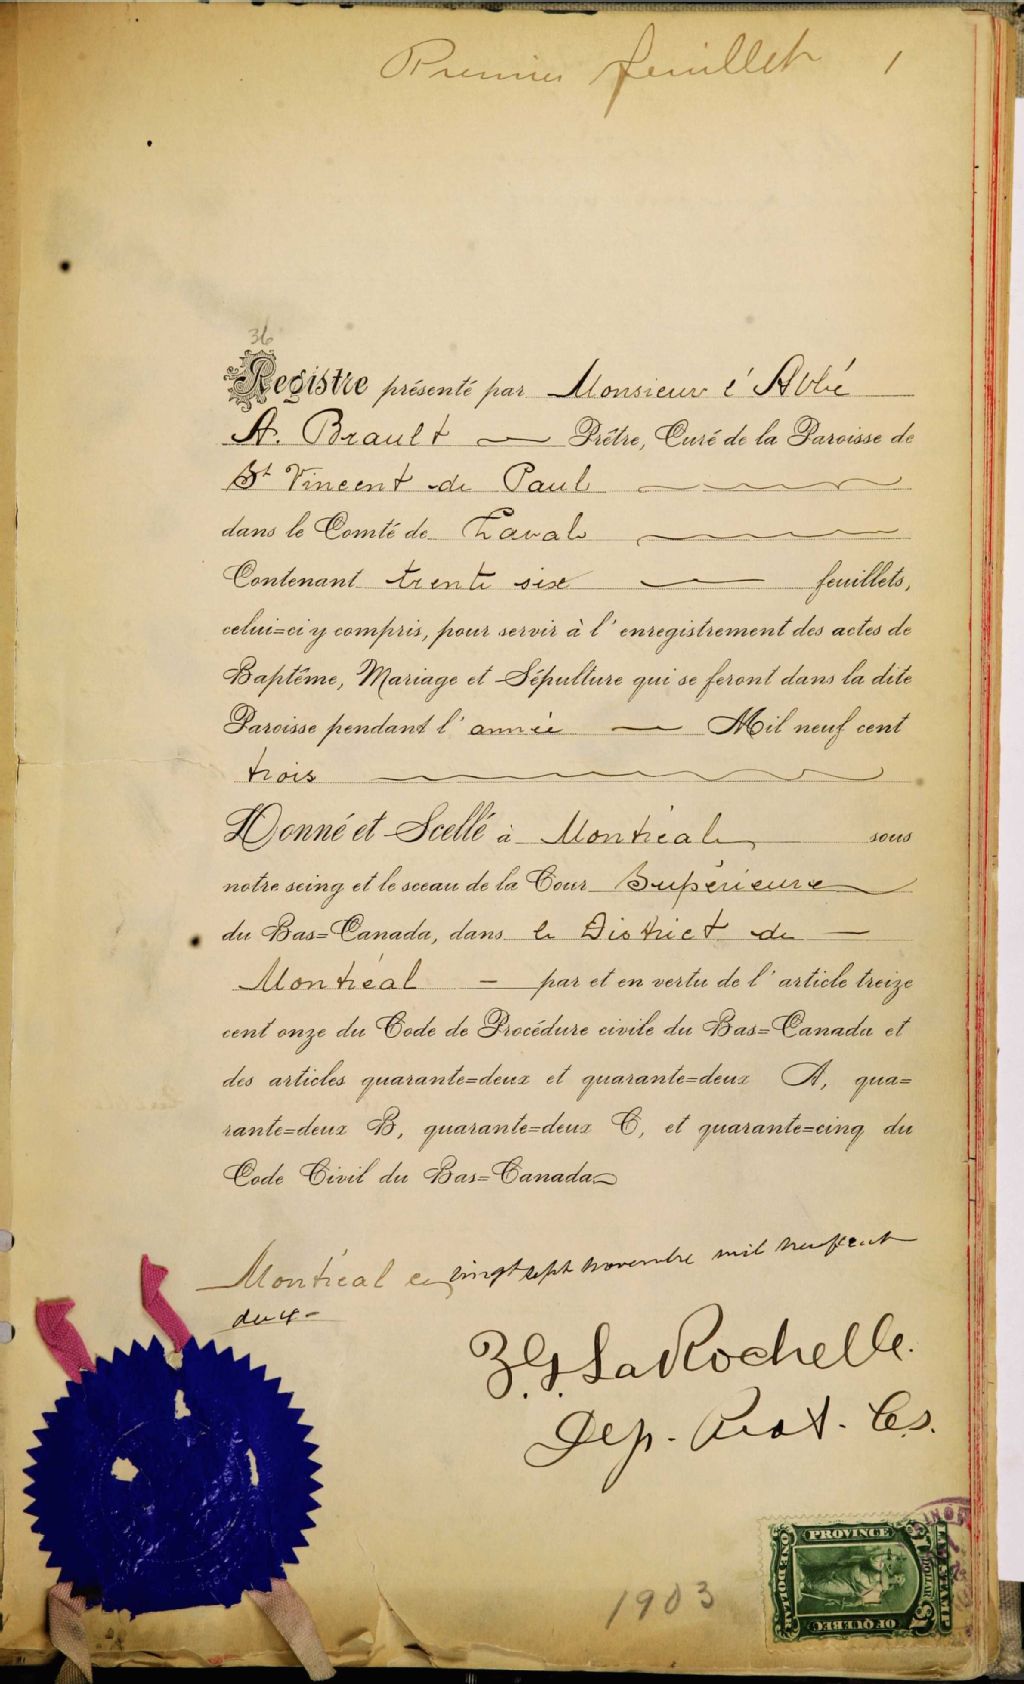 Premier feuillet 1
36
Registre présenté par Monsieur l'Abbé
A. Brault Prêtre, Curé de la Paroisse de
St Vincent de Paul
dans le Comté de Laval
Contenant trente six feuillets,
celui=ci y compris, pour servir à l'enregistrement des actes de
Baptême, Mariage et Sépulture qui se feront dans la dite
Paroisse pendant l'année Mil neuf cent
trois
Donné et Scellé à Montréal sous
notre seing et le sceau de la Cour Supérieure
du Bas=Canada, dans le District de
Montréal par et en vertu de l'article treize
cent onze du Code de Procédure civile du Bas=Canada et
des articles quarante=deux et quarante=deux A, qua=
rante=deux B, quarante=deux C, et quarante=cinq du
Code Civil du Bas=Canada
Montréal ce vingt sept novembre mil neuf cent
deux
Z. G. LaRochelle.
Dep. Prot. C.S.
1903
PROVINCE
OF QUEBEC
ONE DOLLAR
DOLLAR
$1
LAW STAMP